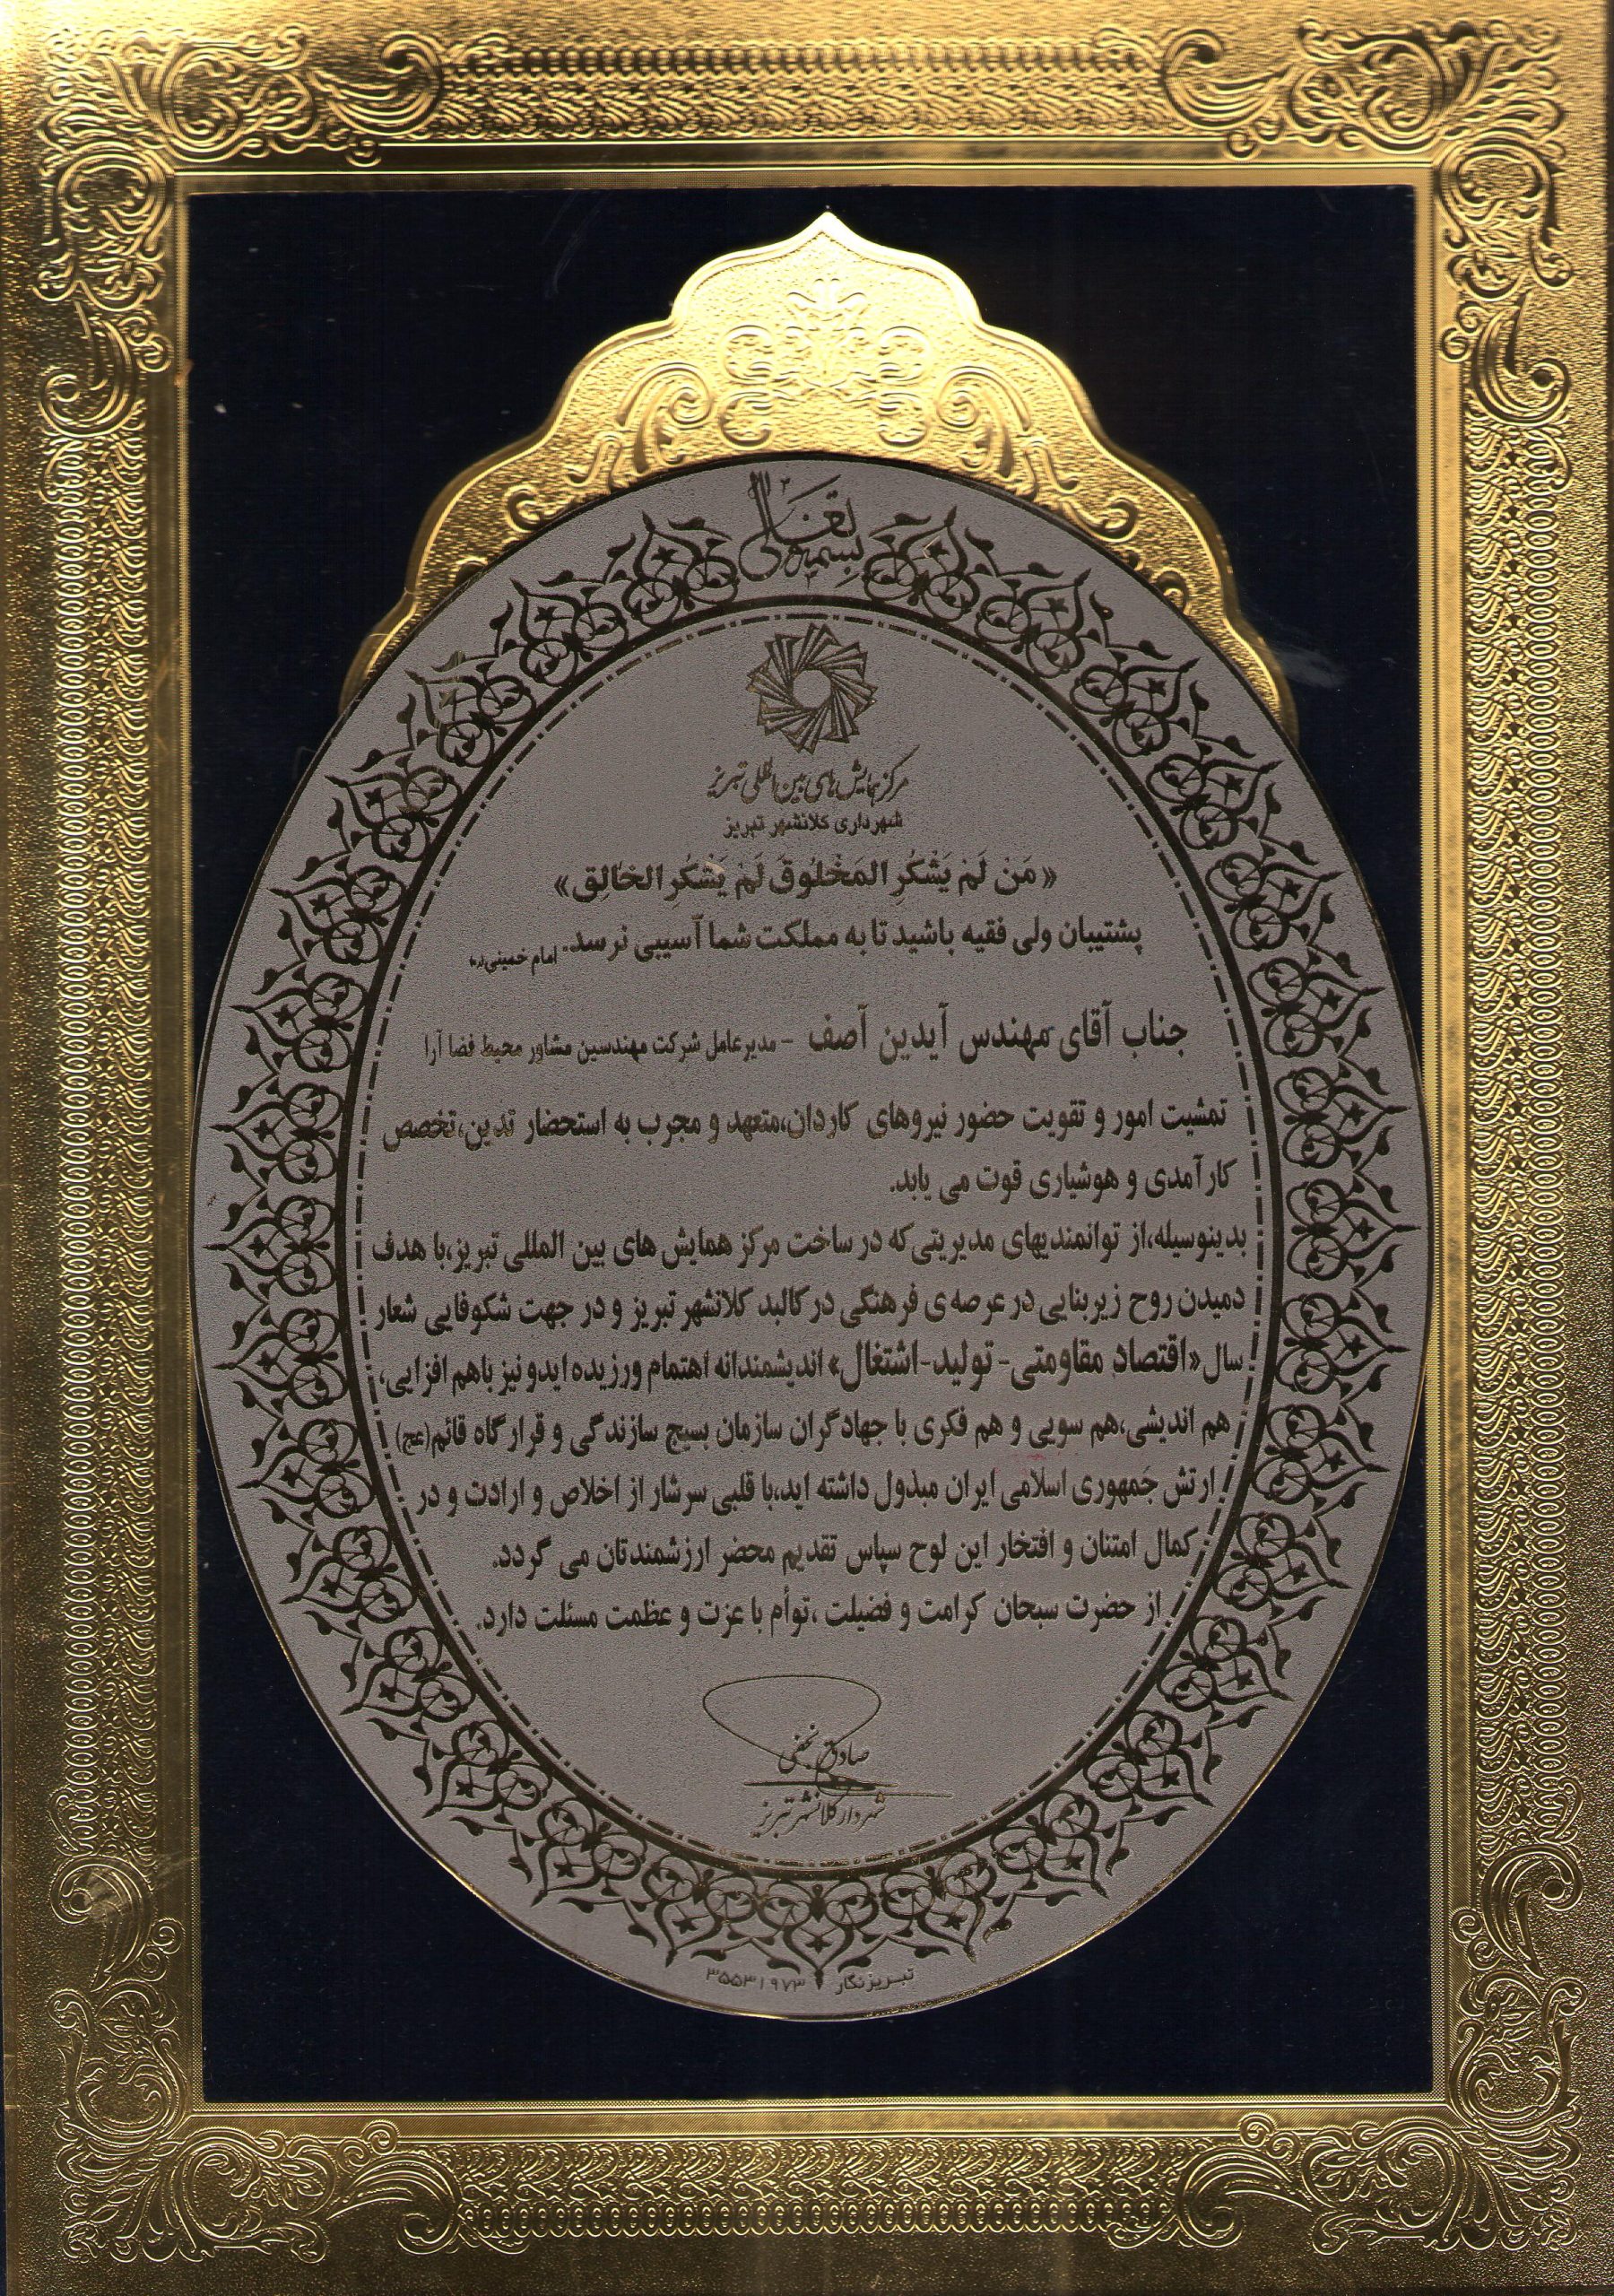 بسمه تعالی
مرکز همایش های بین المللی تبریز
شهرداری کلانشهر تبریز
« مَن لَم یَشْکُرِ المَخْلُوقَ لَم یَشْکُرِ الخالِق »
پشتیبان ولی فقیه باشید تا به مملکت شما آسیبی نرسد. امام خمینی(ره)
جناب آقای مهندس آیدین آصف - مدیرعامل شرکت مهندسین مشاور محیط فضا آرا
تمشیت امور و تقویت حضور نیروهای کاردان،متعهد و مجرب به استحضار تدین،تخصص
کارآمدی و هوشیاری قوت می یابد.
بدینوسیله،از توانمندیهای مدیریتی که در ساخت مرکز همایش های بین المللی تبریز،با هدف
دمیدن روح زیربنایی در عرصه ی فرهنگی در کالبد کلانشهر تبریز و در جهت شکوفایی شعار
سال «اقتصاد مقاومتی- تولید-اشتغال» اندیشمندانه اهتمام ورزیده ایدو نیز باهم افزایی،
هم اندیشی،هم سویی و هم فکری با جهادگران سازمان بسیج سازندگی و قرارگاه قائم(عج)
ارتش جمهوری اسلامی ایران مبذول داشته اید،با قلبی سرشار از اخلاص و ارادت و در
کمال امتنان و افتخار این لوح سپاس تقدیم محضر ارزشمندتان می گردد.
از حضرت سبحان کرامت و فضیلت ،توأم با عزت و عظمت مسئلت دارد.
صادق نجفی
شهردار کلانشهر تبریز
تبریزنگار ۳۵۵۳۱۹۷۳